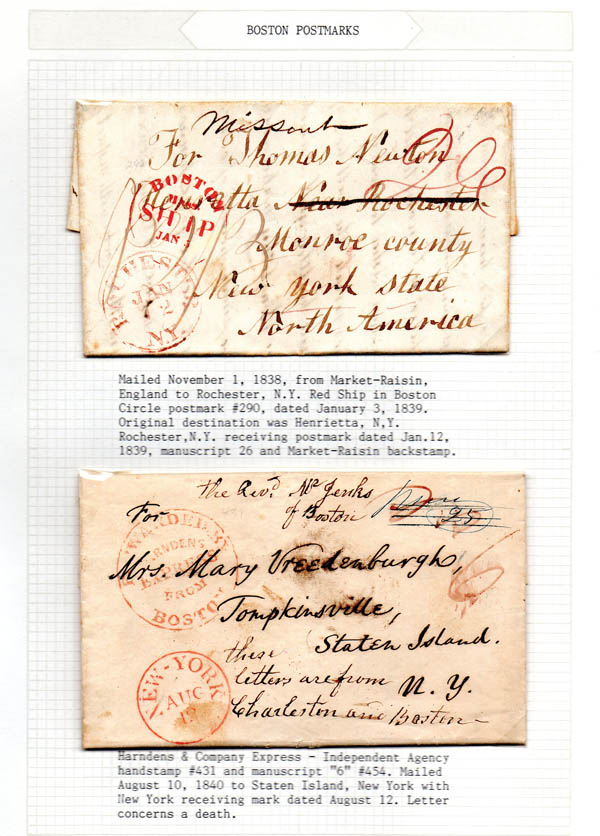 BOSTON POSTMARKS
Missent
For Thomas Newton
Henrietta Near Rochester
Monroe county
New York state
North America
BOSTON
SHIP
JAN
ROCHESTER
JAN
12
NY
Mailed November 1, 1838, from Market-Raisin,
England to Rochester, N.Y. Red Ship in Boston
Circle postmark #290, dated January 3, 1839.
Original destination was Henrietta, N,Y.
Rochester,N.Y. receiving postmark dated Jan.12,
1839, manuscript 26 and Market-Raisin backstamp.
the Revd. Mr Jenks
of Boston
25
For
6
Mrs. Mary Vreedenburgh,
Tompkinsville,
Staten Island.
N. Y.
these
letters are from
Charleston and Boston
FORWARDED BY
HARNDENS
EXPRESS
FROM
BOSTON
NEW-YORK
AUG
12
Harndens & Company Express - Independent Agency
handstamp #431 and manuscript "6" #454. Mailed
August 10, 1840 to Staten Island, New York with
New York receiving mark dated August 12. Letter
concerns a death.